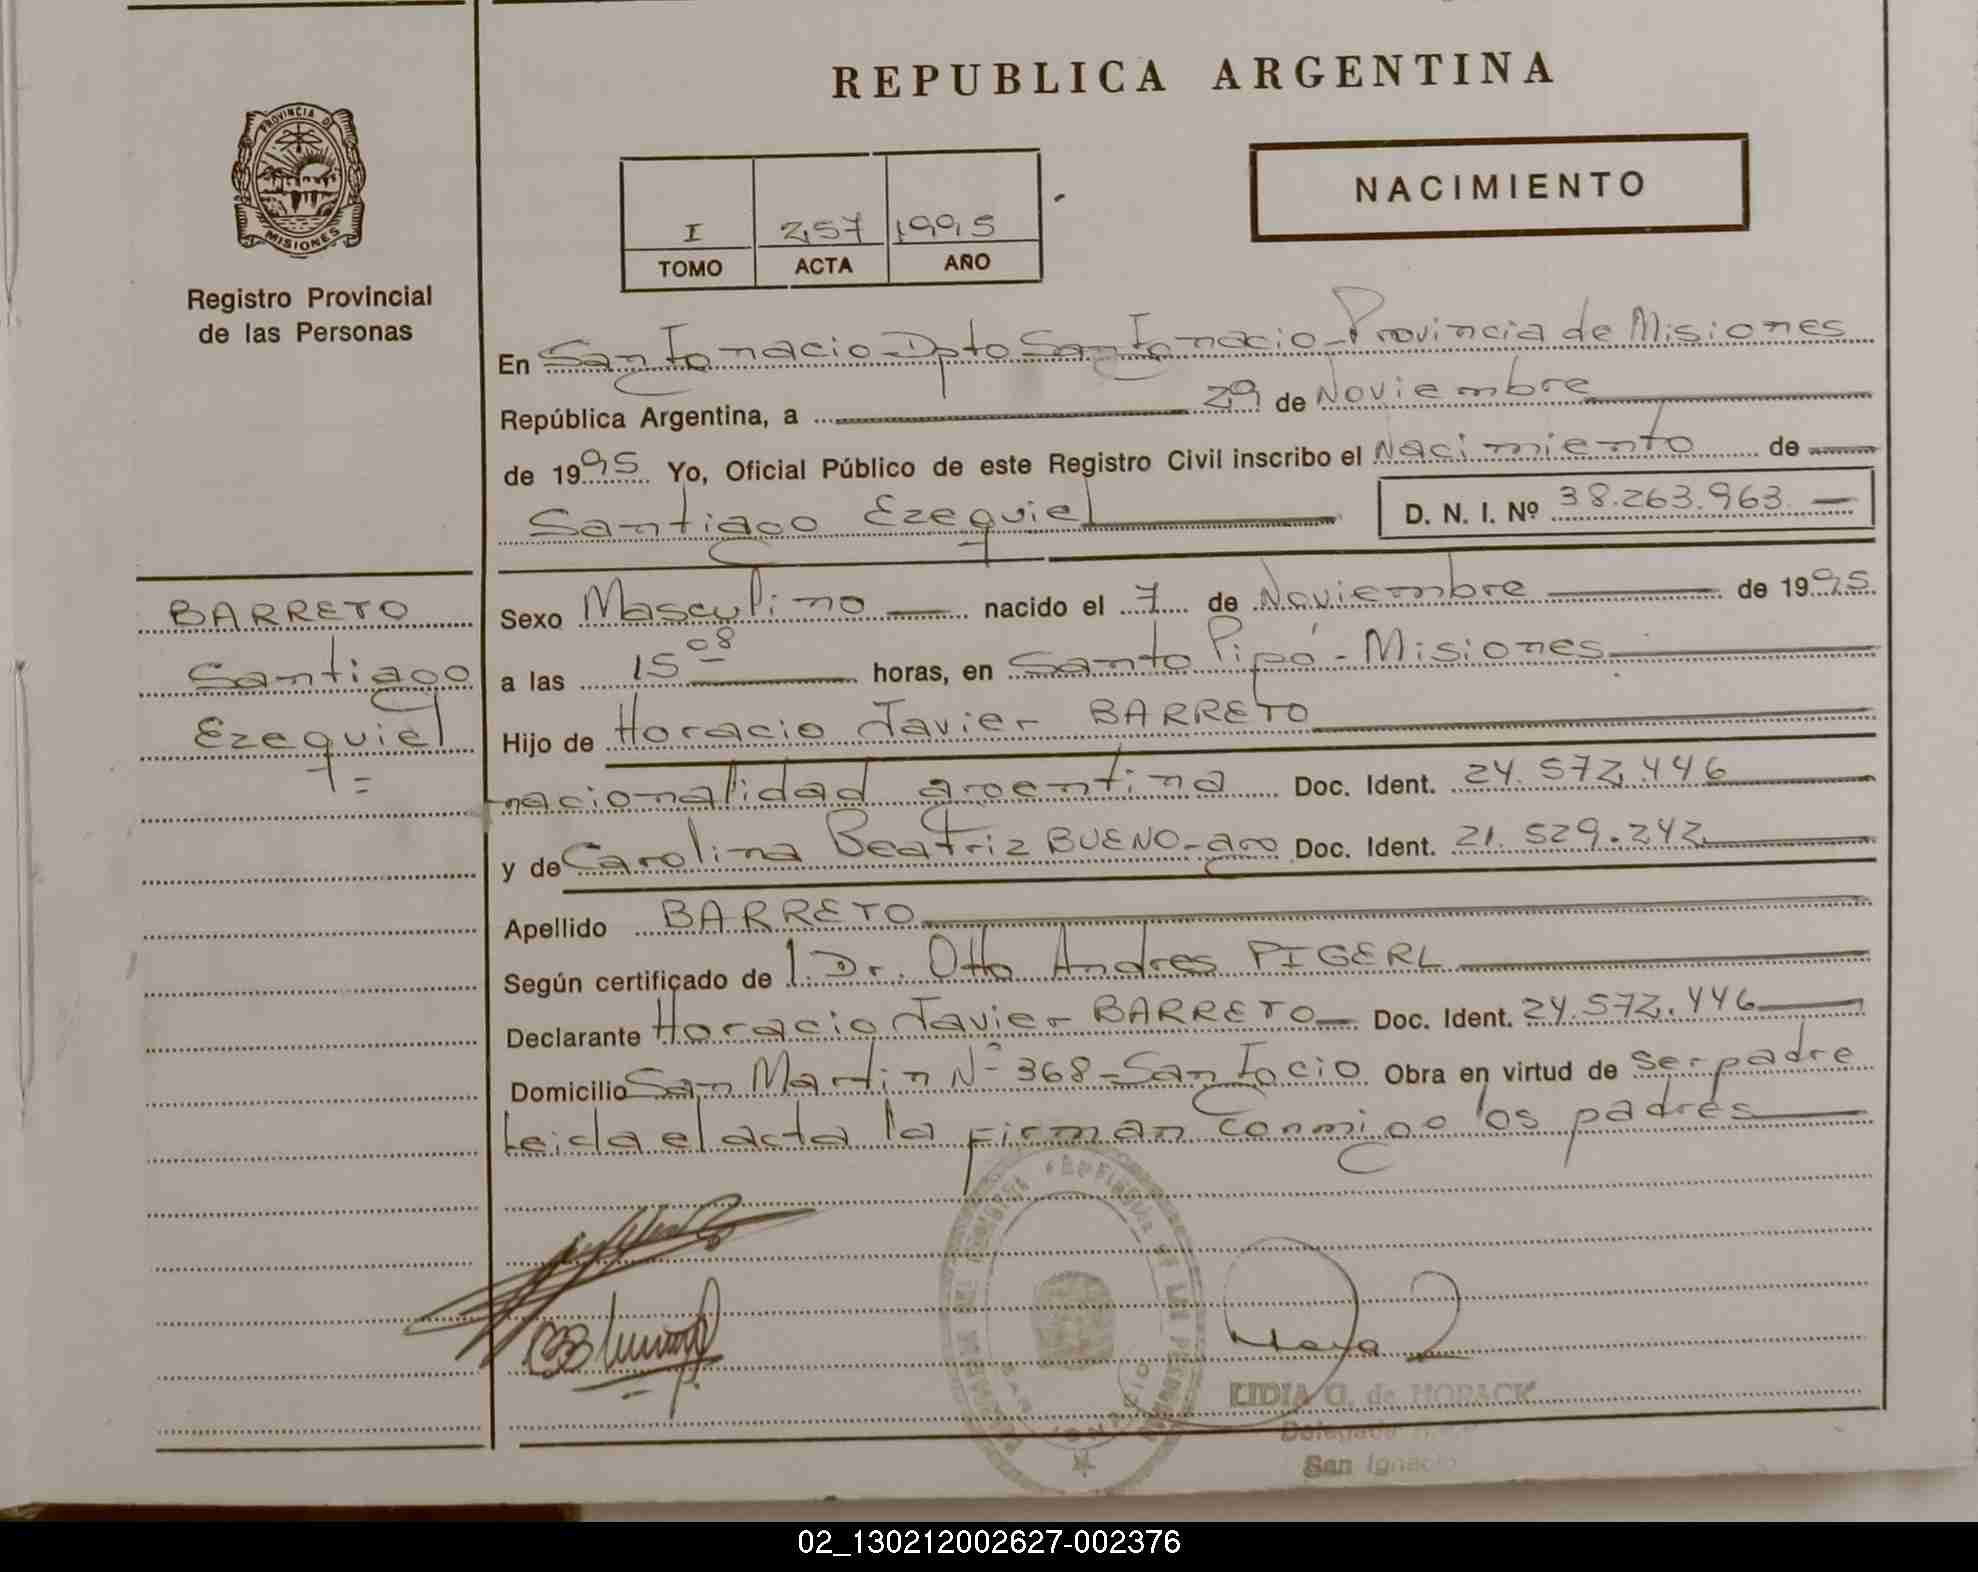 REPUBLICA ARGENTINA
PROVINCIA DE
MISIONES
Registro Provincial
de las Personas
NACIMIENTO
I 257 1995
TOMO ACTA AÑO
En San Ignacio Dpto San Ignacio - Provincia de Misiones
República Argentina, a 29 de Noviembre
de 1995 Yo, Oficial Público de este Registro Civil inscribo el Nacimiento de
Santiago Ezequiel D. N. I. Nº 38.263.963
BARRETO
Santiago
Ezequiel
Sexo Masculino nacido el 7 de Noviembre de 1995
a las 15 08 horas, en Santo Pipó - Misiones
Hijo de Horacio Javier BARRETO
nacionalidad argentina Doc. Ident. 24.572.446
y de Carolina Beatriz BUENO - arg Doc. Ident. 21.529.242
Apellido BARRETO
Según certificado de l. Dr. Otto Andres PIGERL
Declarante Horacio Javier BARRETO Doc. Ident. 24.572.446
Domicilio San Martin Nº 368 - San Igcio Obra en virtud de ser padre
Leida el acta la firman conmigo los padres
LIDIA G. de HORACK
Delegada
San Ignacio
02_130212002627-002376